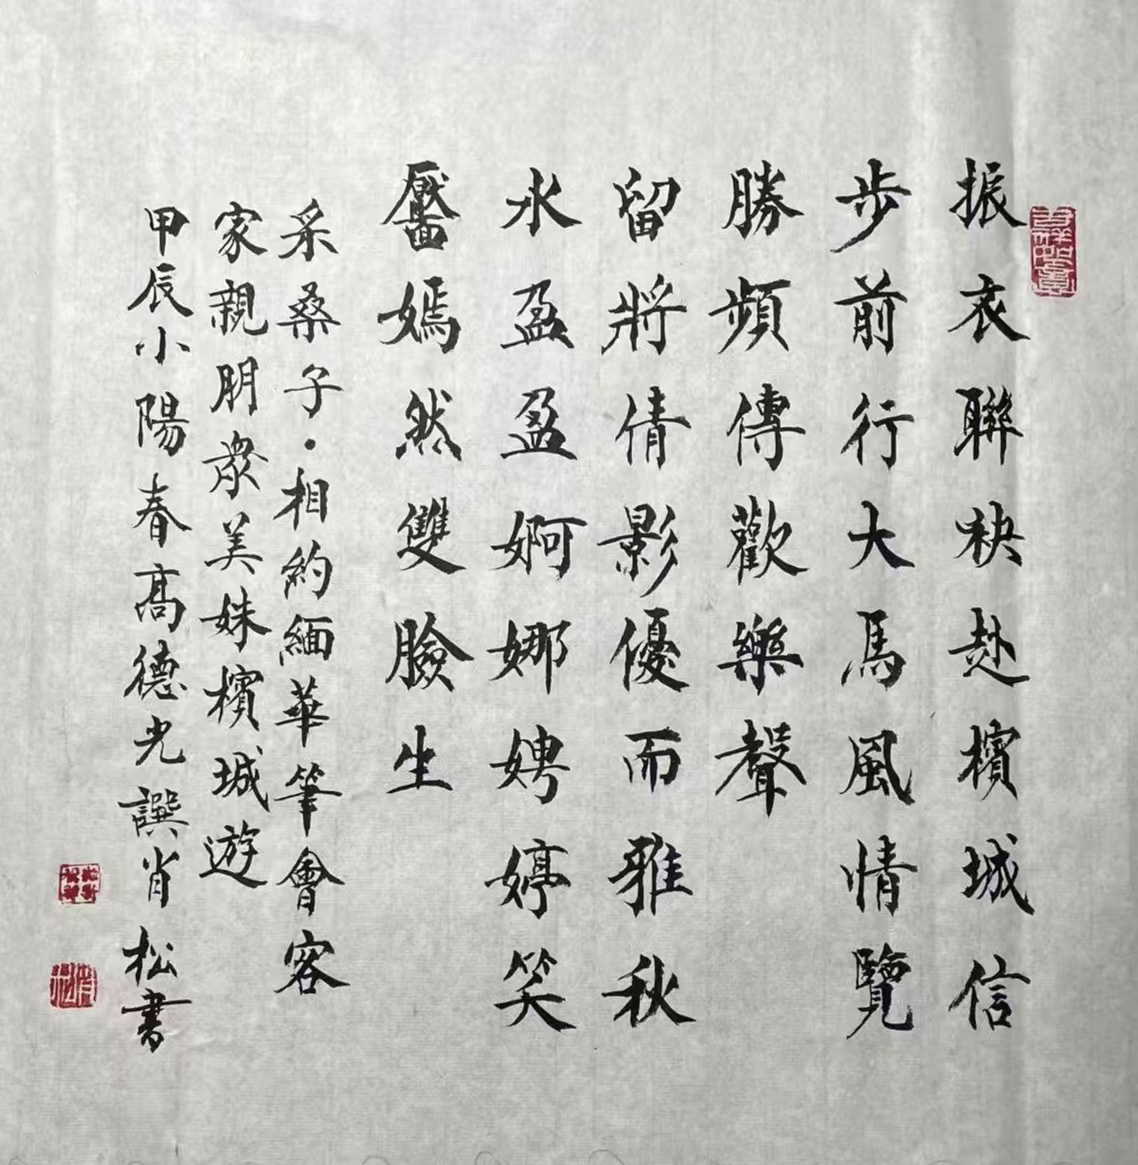 振衣聯袂赴檳城信
步前行大馬風情覽
勝頻傳歡樂聲
留將倩影優而雅秋
水盈盈婀娜娉婷笑
靨嫣然雙臉生
采桑子·相約緬華筆會客
家親朋眾美姝檳城遊
甲辰小陽春高德光譔肖松書